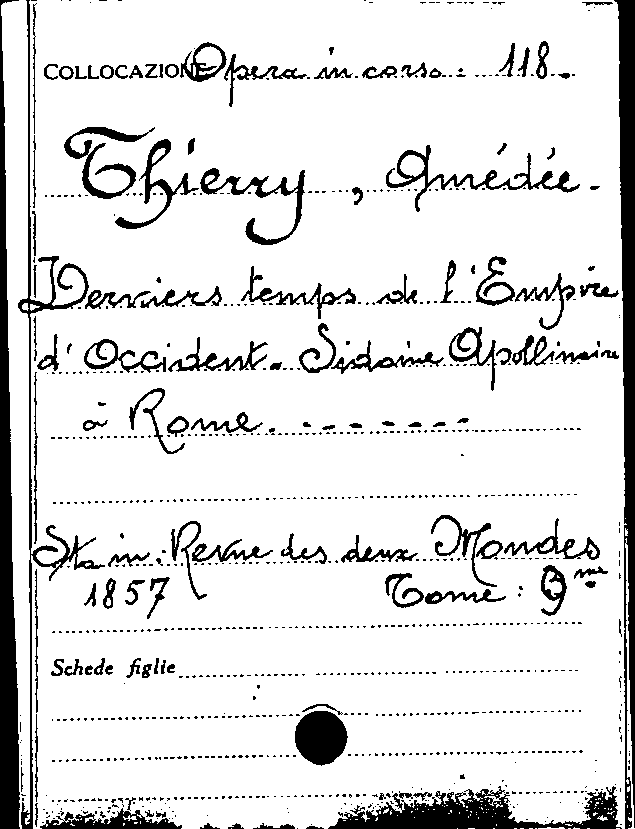 COLLOCAZIONE Opera in corso: 118.
Thierry, Amédée.
Derniers temps de l'Empire
d'Occident. Sidoine Apollinaire
à Rome. - - - - - - -
Sta in: Revue des deux Mondes
1857 Tome: 9me
Schede figlie